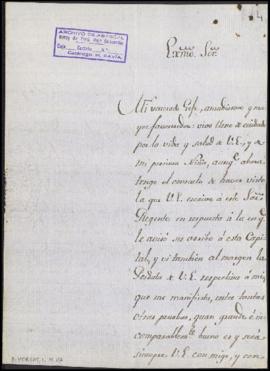 ARCHIVO DE ABASCAL
Exmo. Sor.
Mi venerado Gefe, amadisimo y siem
pre favorecedor: vivo lleno de cuidado
por la vida y salud de V.E., y de
mi preciosa Niña, aunq.e ahora
tengo el consuelo de haver visto
la que V.E. escrive á este Sor.
Regente en respuesta á la en q.e
le avisó mi arribo á esta Capi
tal, y vi tambien al margen la
Posdata de V.E. respectiva á mi,
que me manifiesta, entre tantas
otras pruebas, quan grande é in
comparablem.te bueno es y será
siempre V.E. con migo, y con